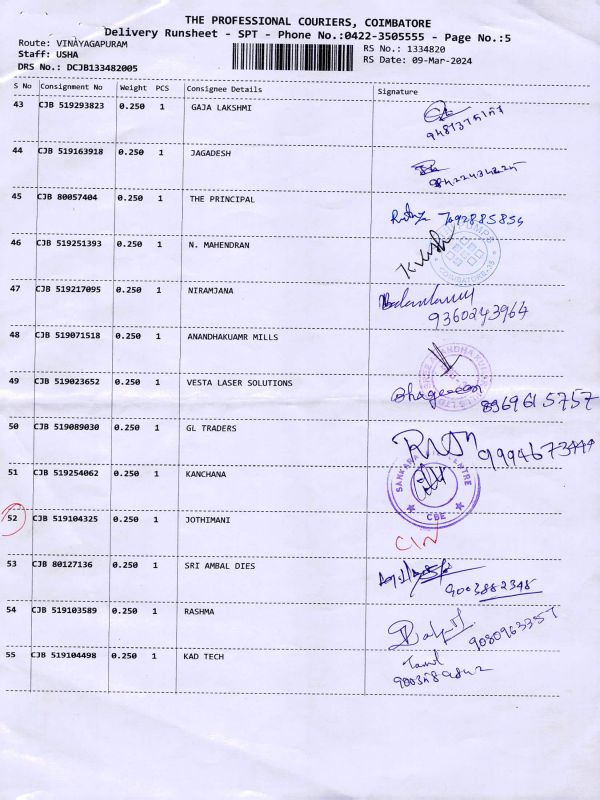 THE PROFESSIONAL COURIERS, COIMBATORE
Delivery Runsheet - SPT - Phone No.:0422-3505555 - Page No.:5
Route: VINAYAGAPURAM
RS No.: 1334820
Staff: USHA
RS Date: 09-Mar-2024
DRS No.: DCJB133482005
S No Consignment No Weight PCS Consignee Details Signature
43 CJB 519293823 0.250 1 GAJA LAKSHMI
44 CJB 519163918 0.250 1 JAGADESH
45 CJB 80057404 0.250 1 THE PRINCIPAL
7092885855
46 CJB 519251393 0.250 1 N. MAHENDRAN
47 CJB 519217095 0.250 1 NIRAMJANA
9360243964
48 CJB 519071518 0.250 1 ANANDHAKUAMR MILLS
49 CJB 519023652 0.250 1 VESTA LASER SOLUTIONS
8969615757
50 CJB 519089030 0.250 1 GL TRADERS
9994673444
51 CJB 519254062 0.250 1 KANCHANA
CBE
52 CJB 519104325 0.250 1 JOTHIMANI
CIN
53 CJB 80127136 0.250 1 SRI AMBAL DIES
9003882345
54 CJB 519103589 0.250 1 RASHMA
9080963357
55 CJB 519104498 0.250 1 KAD TECH
Tamil